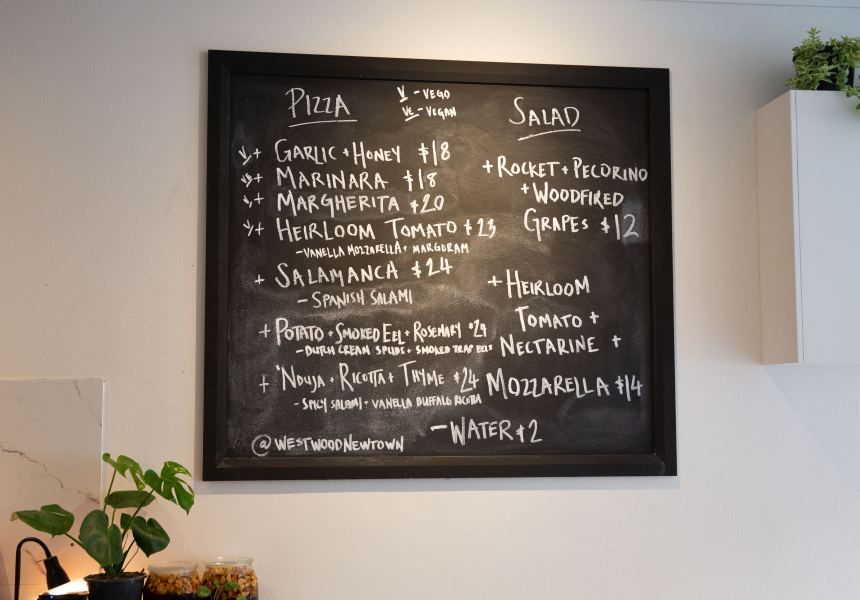 PIZZA
V - VEGO
VE - VEGAN
V + GARLIC + HONEY $18
VE + MARINARA $18
V + MARGHERITA $20
V + HEIRLOOM TOMATO $23
- VANELLA MOZZARELLA + MARGORAM
+ SALAMANCA $24
- SPANISH SALAMI
+ POTATO + SMOKED EEL + ROSEMARY $24
- DUTCH CREAM SPUDS + SMOKED TRAP EELS
+ 'NDUJA + RICOTTA + THYME $24
- SPICY SALAMI + VANELLA BUFFALO RICOTTA
@WESTWOODNEWTOWN
SALAD
+ ROCKET + PECORINO
+ WOODFIRED
GRAPES $12
+ HEIRLOOM
TOMATO +
NECTARINE +
MOZZARELLA $14
- WATER $2